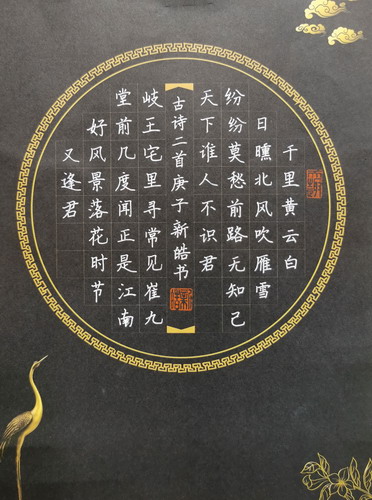 千里黄云白
日曛北风吹雁雪
纷纷莫愁前路无知己
天下谁人不识君
古诗二首庚子新皓书
岐王宅里寻常见崔九
堂前几度闻正是江南
好风景落花时节
又逢君